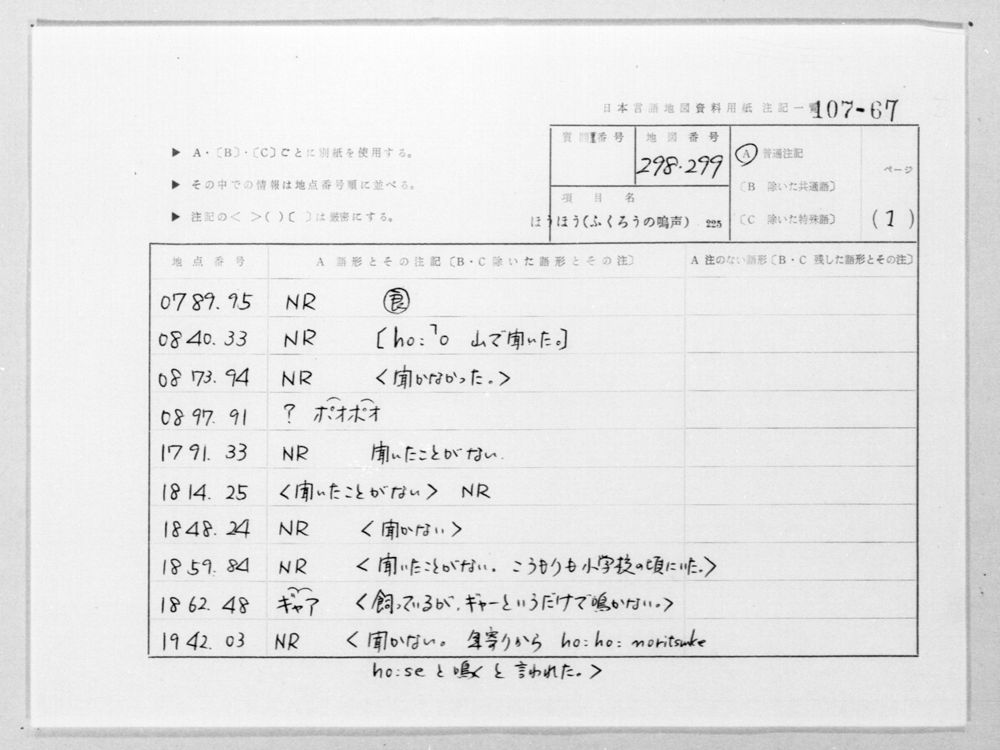 日本言語地図資料用紙 注記一覧 107-67
▶ A・〔B〕・〔C〕ごとに別紙を使用する。
▶ その中での情報は地点番号順に並べる。
▶ 注記の< >( )〔 〕は厳密にする。
質問番号
地図番号
298・299
項目名
ほうほう(ふくろうの鳴声) 225
A 普通注記
〔B 除いた共通語〕
〔C 除いた特殊語〕
ページ
(1)
地点番号 A 語形とその注記〔B・C 除いた語形とその注〕 A 注のない語形〔B・C 残した語形とその注〕
0789.95 NR
0840.33 NR [ho:˥o 山で聞いた。]
0873.94 NR <聞かなかった。>
0897.91 ? ポオポオ
1791.33 NR 聞いたことがない.
1814.25 <聞いたことがない> NR
1848.24 NR <聞かない>
1859.84 NR <聞いたことがない。こうもりも小学校の頃にいた。>
1862.48 ギャア <飼っているが,ギャーというだけで鳴かない。>
1942.03 NR <聞かない。年寄りから ho:ho: noritsuke
ho:se と鳴くと言われた。>